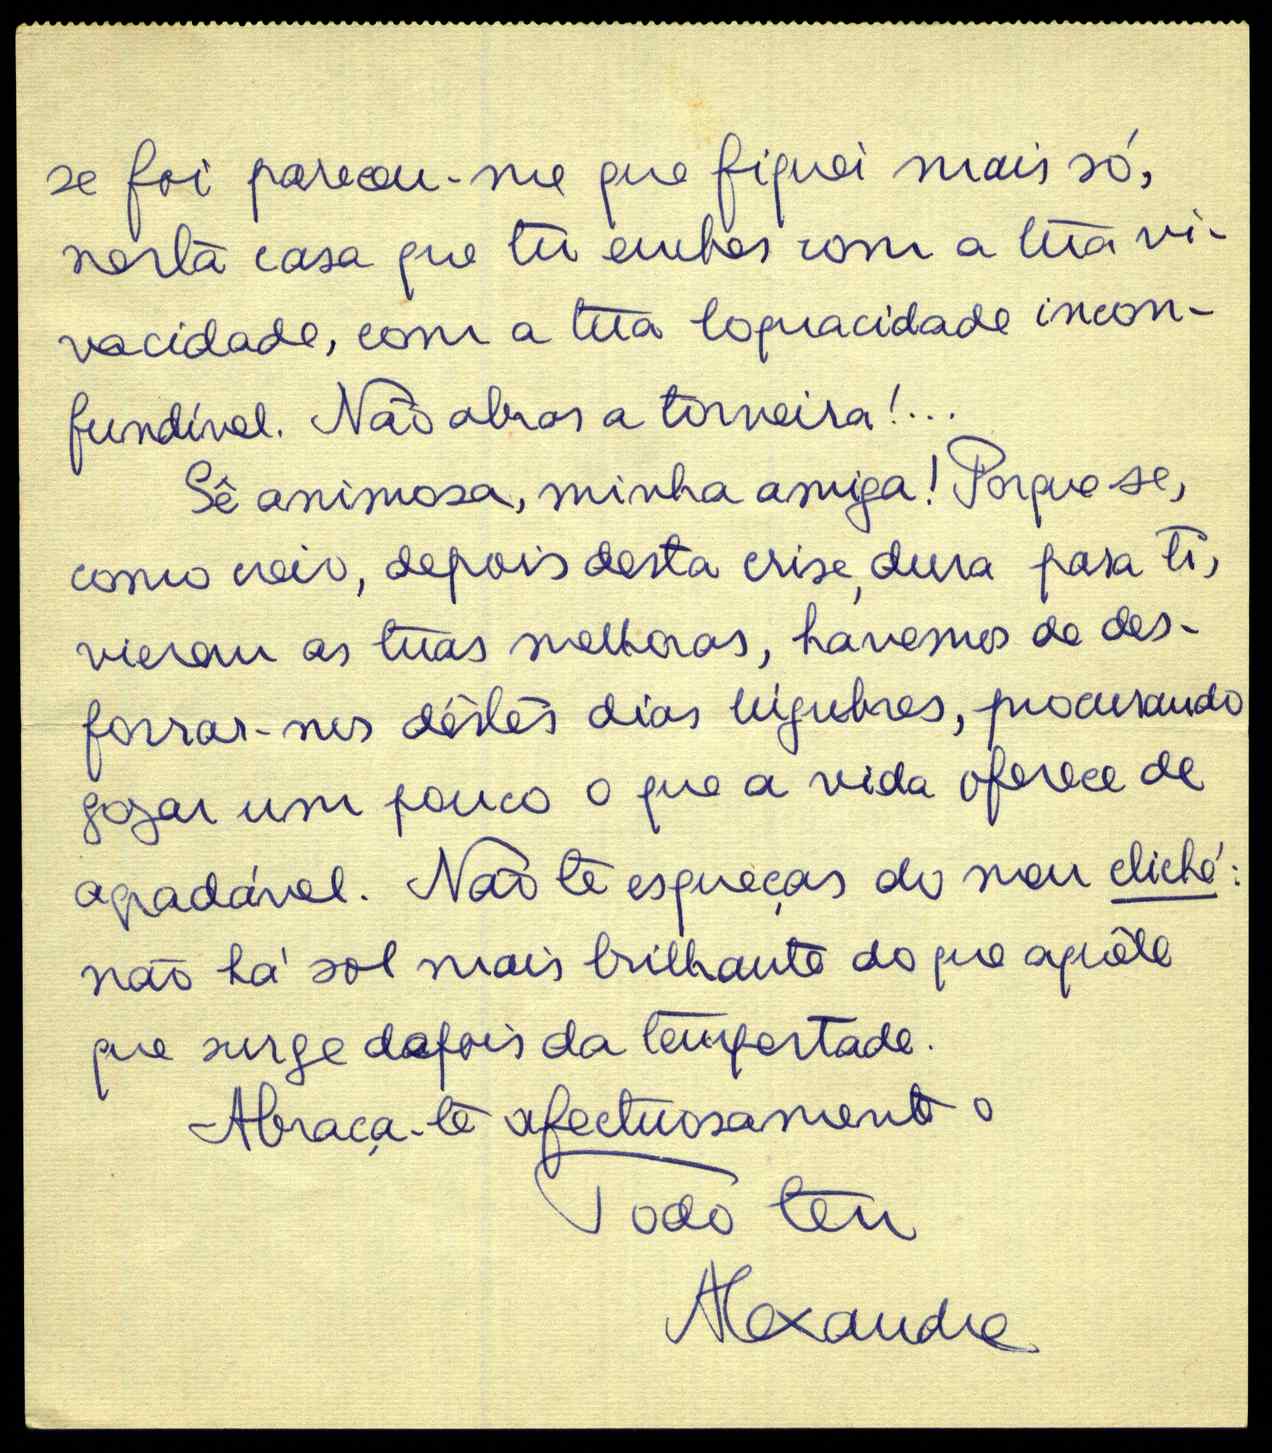 se foi pareceu-me que fiquei mais só,
nesta casa que tu enches com a tua vi-
vacidade, com a tua loquacidade incon-
fundível. Não abras a torneira!...
Sê animosa, minha amiga! Porque se,
como creio, depois desta crise, dura para ti,
vieram as tuas melhoras, havemos de des-
forrar-nos dêstes dias lúgubres, procurando
gozar um pouco o que a vida oferece de
agradável. Não te esqueças do meu cliché:
não há sol mais brilhante do que aquêle
que surge depois da tempestade.
Abraça-te afectuosamente o
Todo teu
Alexandre